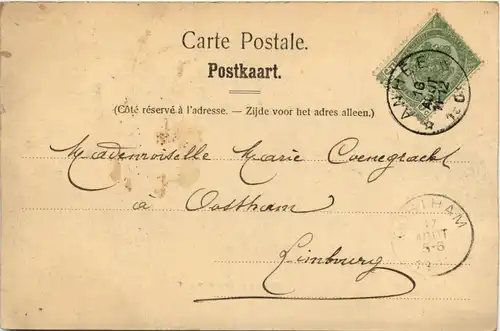 Carte Postale.
Postkaart.
(Côté réservé à l'adresse. — Zijde voor het adres alleen.)
ANHÉE
16
AOUT
12
Mademoiselle Marie Coenegracht
à Oostham
Limbourg
OOSTHAM
17
AOUT
5-6